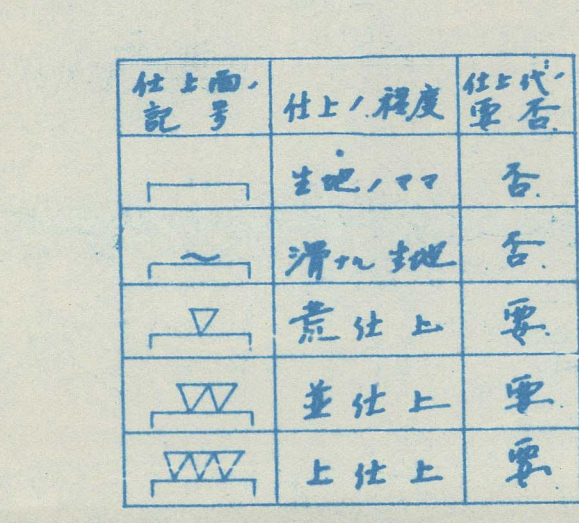 仕上面ノ 記号 仕上ノ程度 仕上代ノ 要否
生地ノママ 否
～ 滑ナル生地 否
▽ 荒仕上 要
▽▽ 並仕上 要
▽▽▽ 上仕上 要